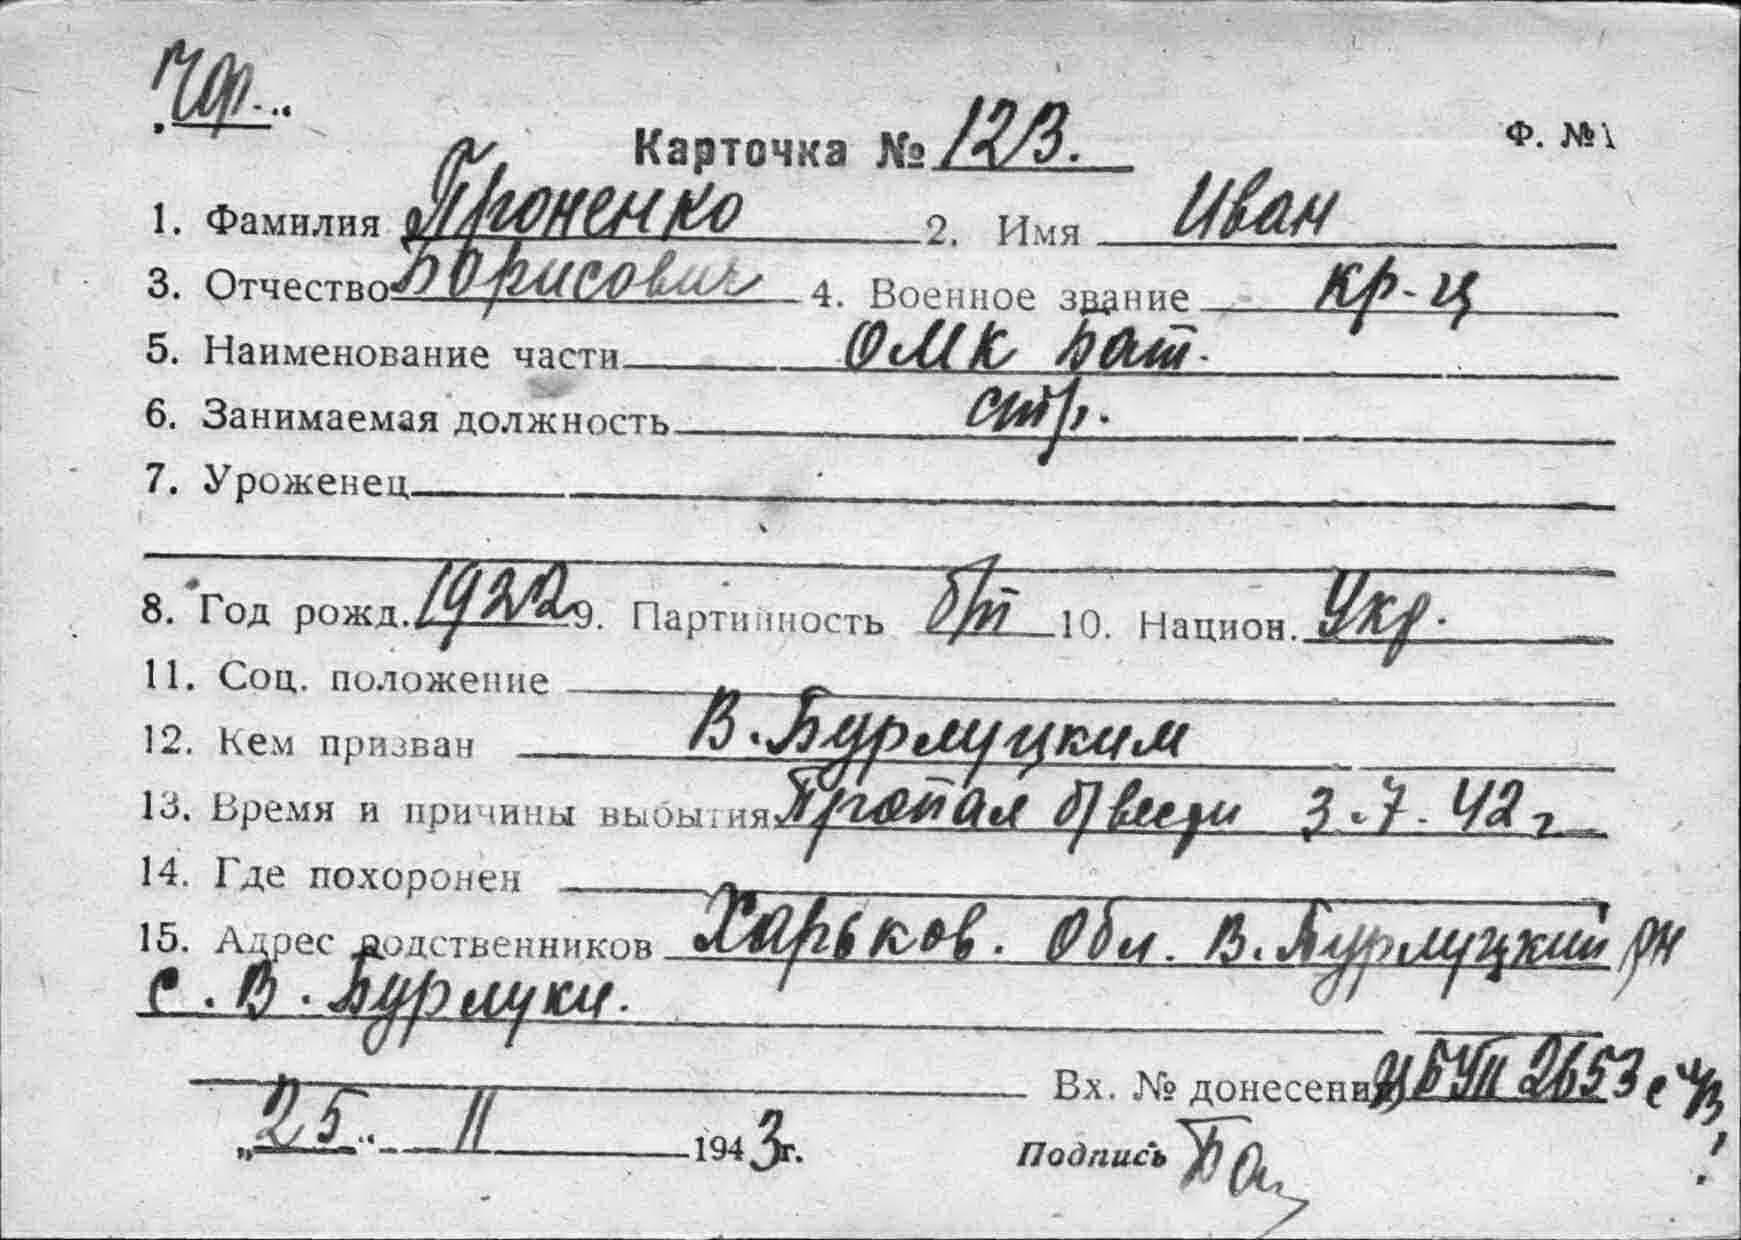 Чер.
Карточка № 123. Ф. №1
1. Фамилия Проненко 2. Имя Иван
3. Отчество Борисович 4. Военное звание кр-ц
5. Наименование части ОМК бат.
6. Занимаемая должность стр.
7. Уроженец
8. Год рожд. 1922 9. Партийность б/п 10. Национ. Укр.
11. Соц. положение
12. Кем призван В. Бурлуцким
13. Время и причины выбытия Пропал б/вести 3.7.42 г
14. Где похоронен
15. Адрес родственников Харьков. обл. В. Бурлуцкий рн
с. В. Бурлуки.
Вх. № донесения 2653 с
„25“ II 1943г. Подпись